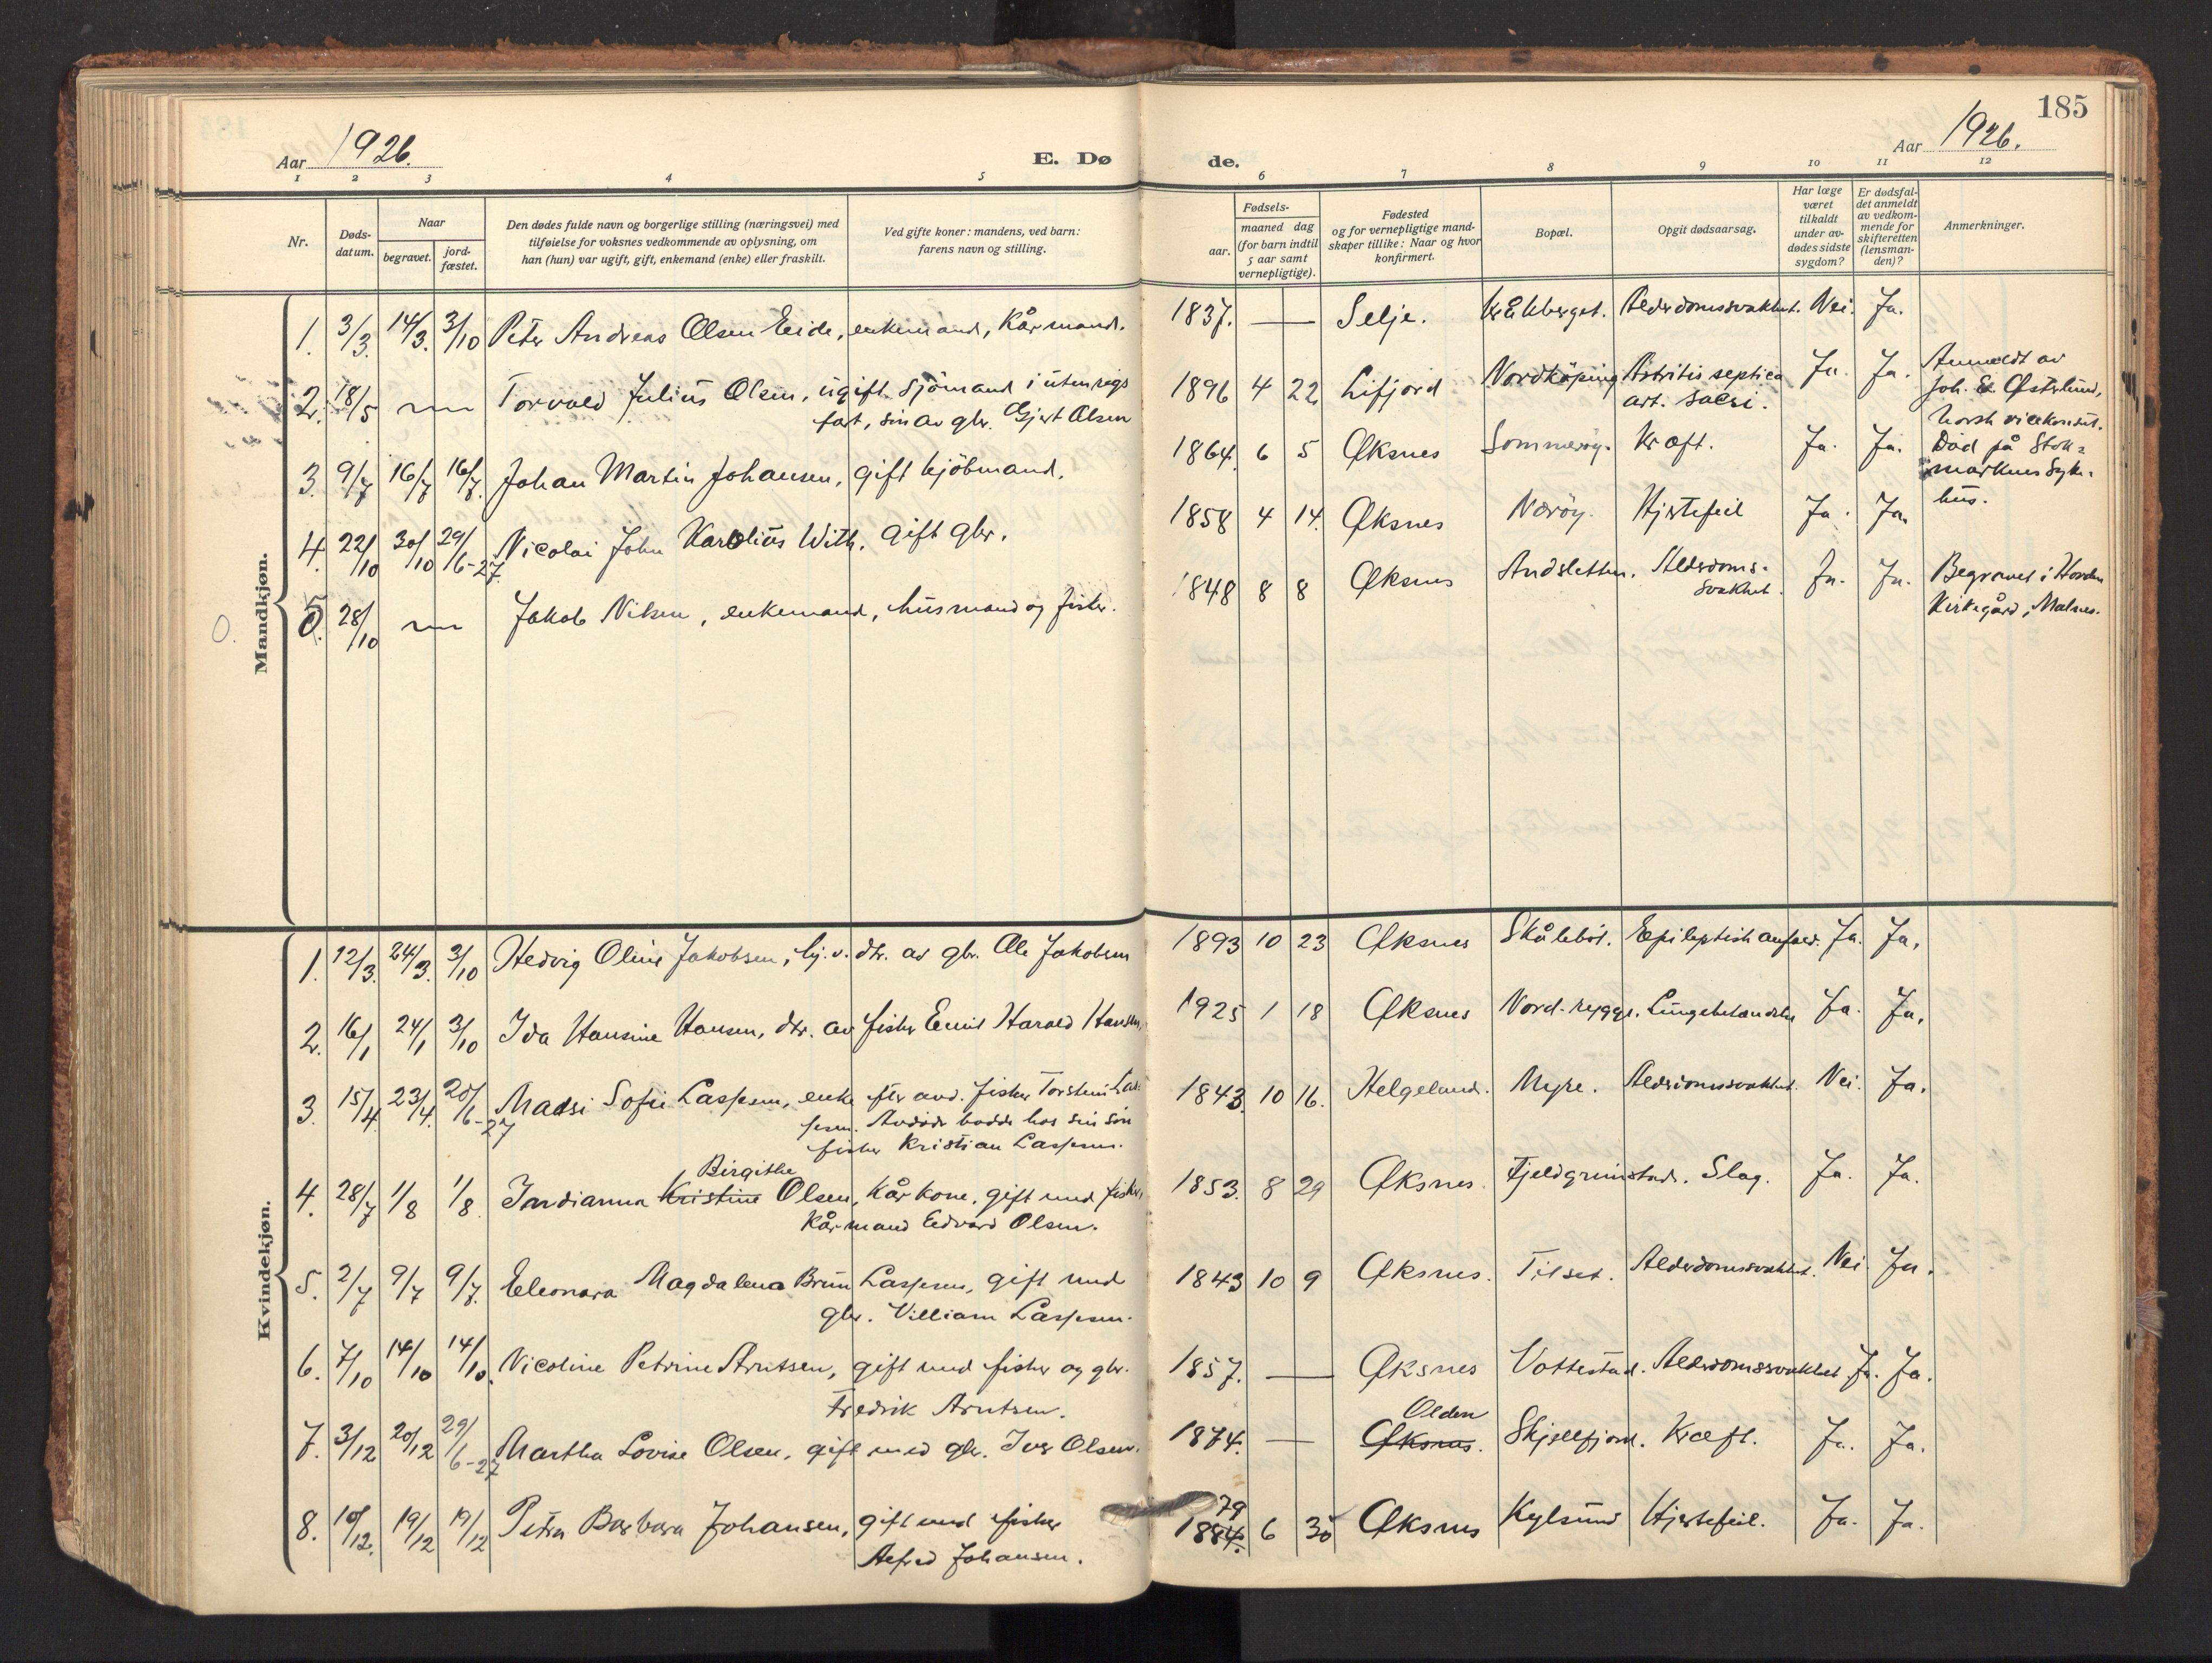 185
Aar 1926.
E. Dø
de.
Aar 1926.
1 2 3 4 5 6 7 8 9 10 11 12
Nr.
Døds-
datum.
Naar
begravet.
jord-
fæstet.
Den dødes fulde navn og borgerlige stilling (næringsvei) med
tilføielse for voksnes vedkommende av oplysning, om
han (hun) var ugift, gift, enkemand (enke) eller fraskilt.
Ved gifte koner: mandens, ved barn:
farens navn og stilling.
Fødsels-
aar.
maaned dag
(for barn indtil
5 aar samt
vernepligtige).
Fødested
og for vernepligtige mand-
skaper tillike: Naar og hvor
konfirmert.
Bopæl.
Opgit dødsaarsag.
Har læge
været
tilkaldt
under av-
dødes sidste
sygdom?
Er dødsfal-
det anmeldt
av vedkom-
mende for
skifteretten
(lensman-
den)?
Anmerkninger.
Mandkjøn.
1. 3/3. 14/3. 3/10 Peter Andreas Olsen Eide, enkemand, Kårmand. 1837. — Selje. Alderdomssvakhet. Nei. Ja.
2. 18/5 Torvald Julius Olsen, ugift sjömand i utenrigs
fart, sön av gbr. Gjert Olsen 1896 4 22 Lifjord Nordköping Artritis septica
art. sacri. Ja. Ja. Anmeldt av
Joh. E. Østerlund,
norsk vicekonsul.
3. 9/7 16/7 16/7. Johan Martin Johansen, gift kjöbmand. 1864. 6 5 Øksnes Sommeröy. Kræft. Ja. Ja. Död på Stok-
marknes Syke-
hus.
4. 22/10 30/10 29/6-27. Nicolai John Karolius With. gift gbr. 1858 4 14. Øksnes Næröy. Hjertefeil Ja. Ja.
0. 5. 28/10 Jakob Nilsen, enkemand, husmand og fisker. 1848 8 8 Øksnes Andsletten. Alderdoms-
svakhet. Ja. Ja. Begravet i Hovden
Kirkegård, Malnes.
Kvindekjøn.
1. 12/3. 24/3. 3/10 Hedvig Oline Jakobsen, hj. v. dtr. av gbr. Ole Jakobsen 1893 10 23 Øksnes Skåleböl. Epileptisk anfald. Ja. Ja.
2. 16/1 24/1 3/10 Ida Hansine Hansen, dtr. av fisker Emil Harald Hansen. 1925 1 18 Øksnes Lungebetændelse Ja. Ja.
3. 15/4 23/4. 20/6-27 Madsi Sofie Lassesen, enke efter avd. fisker Torstein Las-
sesen. Avdöde bodde hos sin sön
fisker Kristian Lassesen. 1843. 10 16. Helgeland. Myre. Alderdomssvakhet. Nei. Ja.
Birgithe
4. 28/7 1/8 1/8. Indianna Kristine Olsen, kårkone, gift med fisker,
Kårmand Edvard Olsen. 1853. 8 29 Øksnes. Fjeldgrimstad. Slag. Ja. Ja.
5. 2/7 9/7 9/7. Eleonora Magdalena Brun Lassesen, gift med
gbr. Villiam Lassesen. 1843 10 9 Øksnes. Tilset. Alderdomssvakhet. Nei Ja.
6. 7/10 14/10 14/10. Nicoline Petrine Arntsen, gift med fisker og gbr.
Fredrik Arntsen. 1857. — Øksnes Vottestad. Alderdomssvakhet Ja. Ja.
Olden
7. 3/12 20/12 29/6-27 Martha Lovise Olsen, gift med gbr. Iver Olsen. 1874. — Øksnes. Skjellfjord. Kræft. Ja. Ja.
79
8. 10/12. 19/12 19/12 Petra Barbara Johansen, gift med fisker
Alfred Johansen. 1884. 6 30 Øksnes Hjertefeil. Ja. Ja.